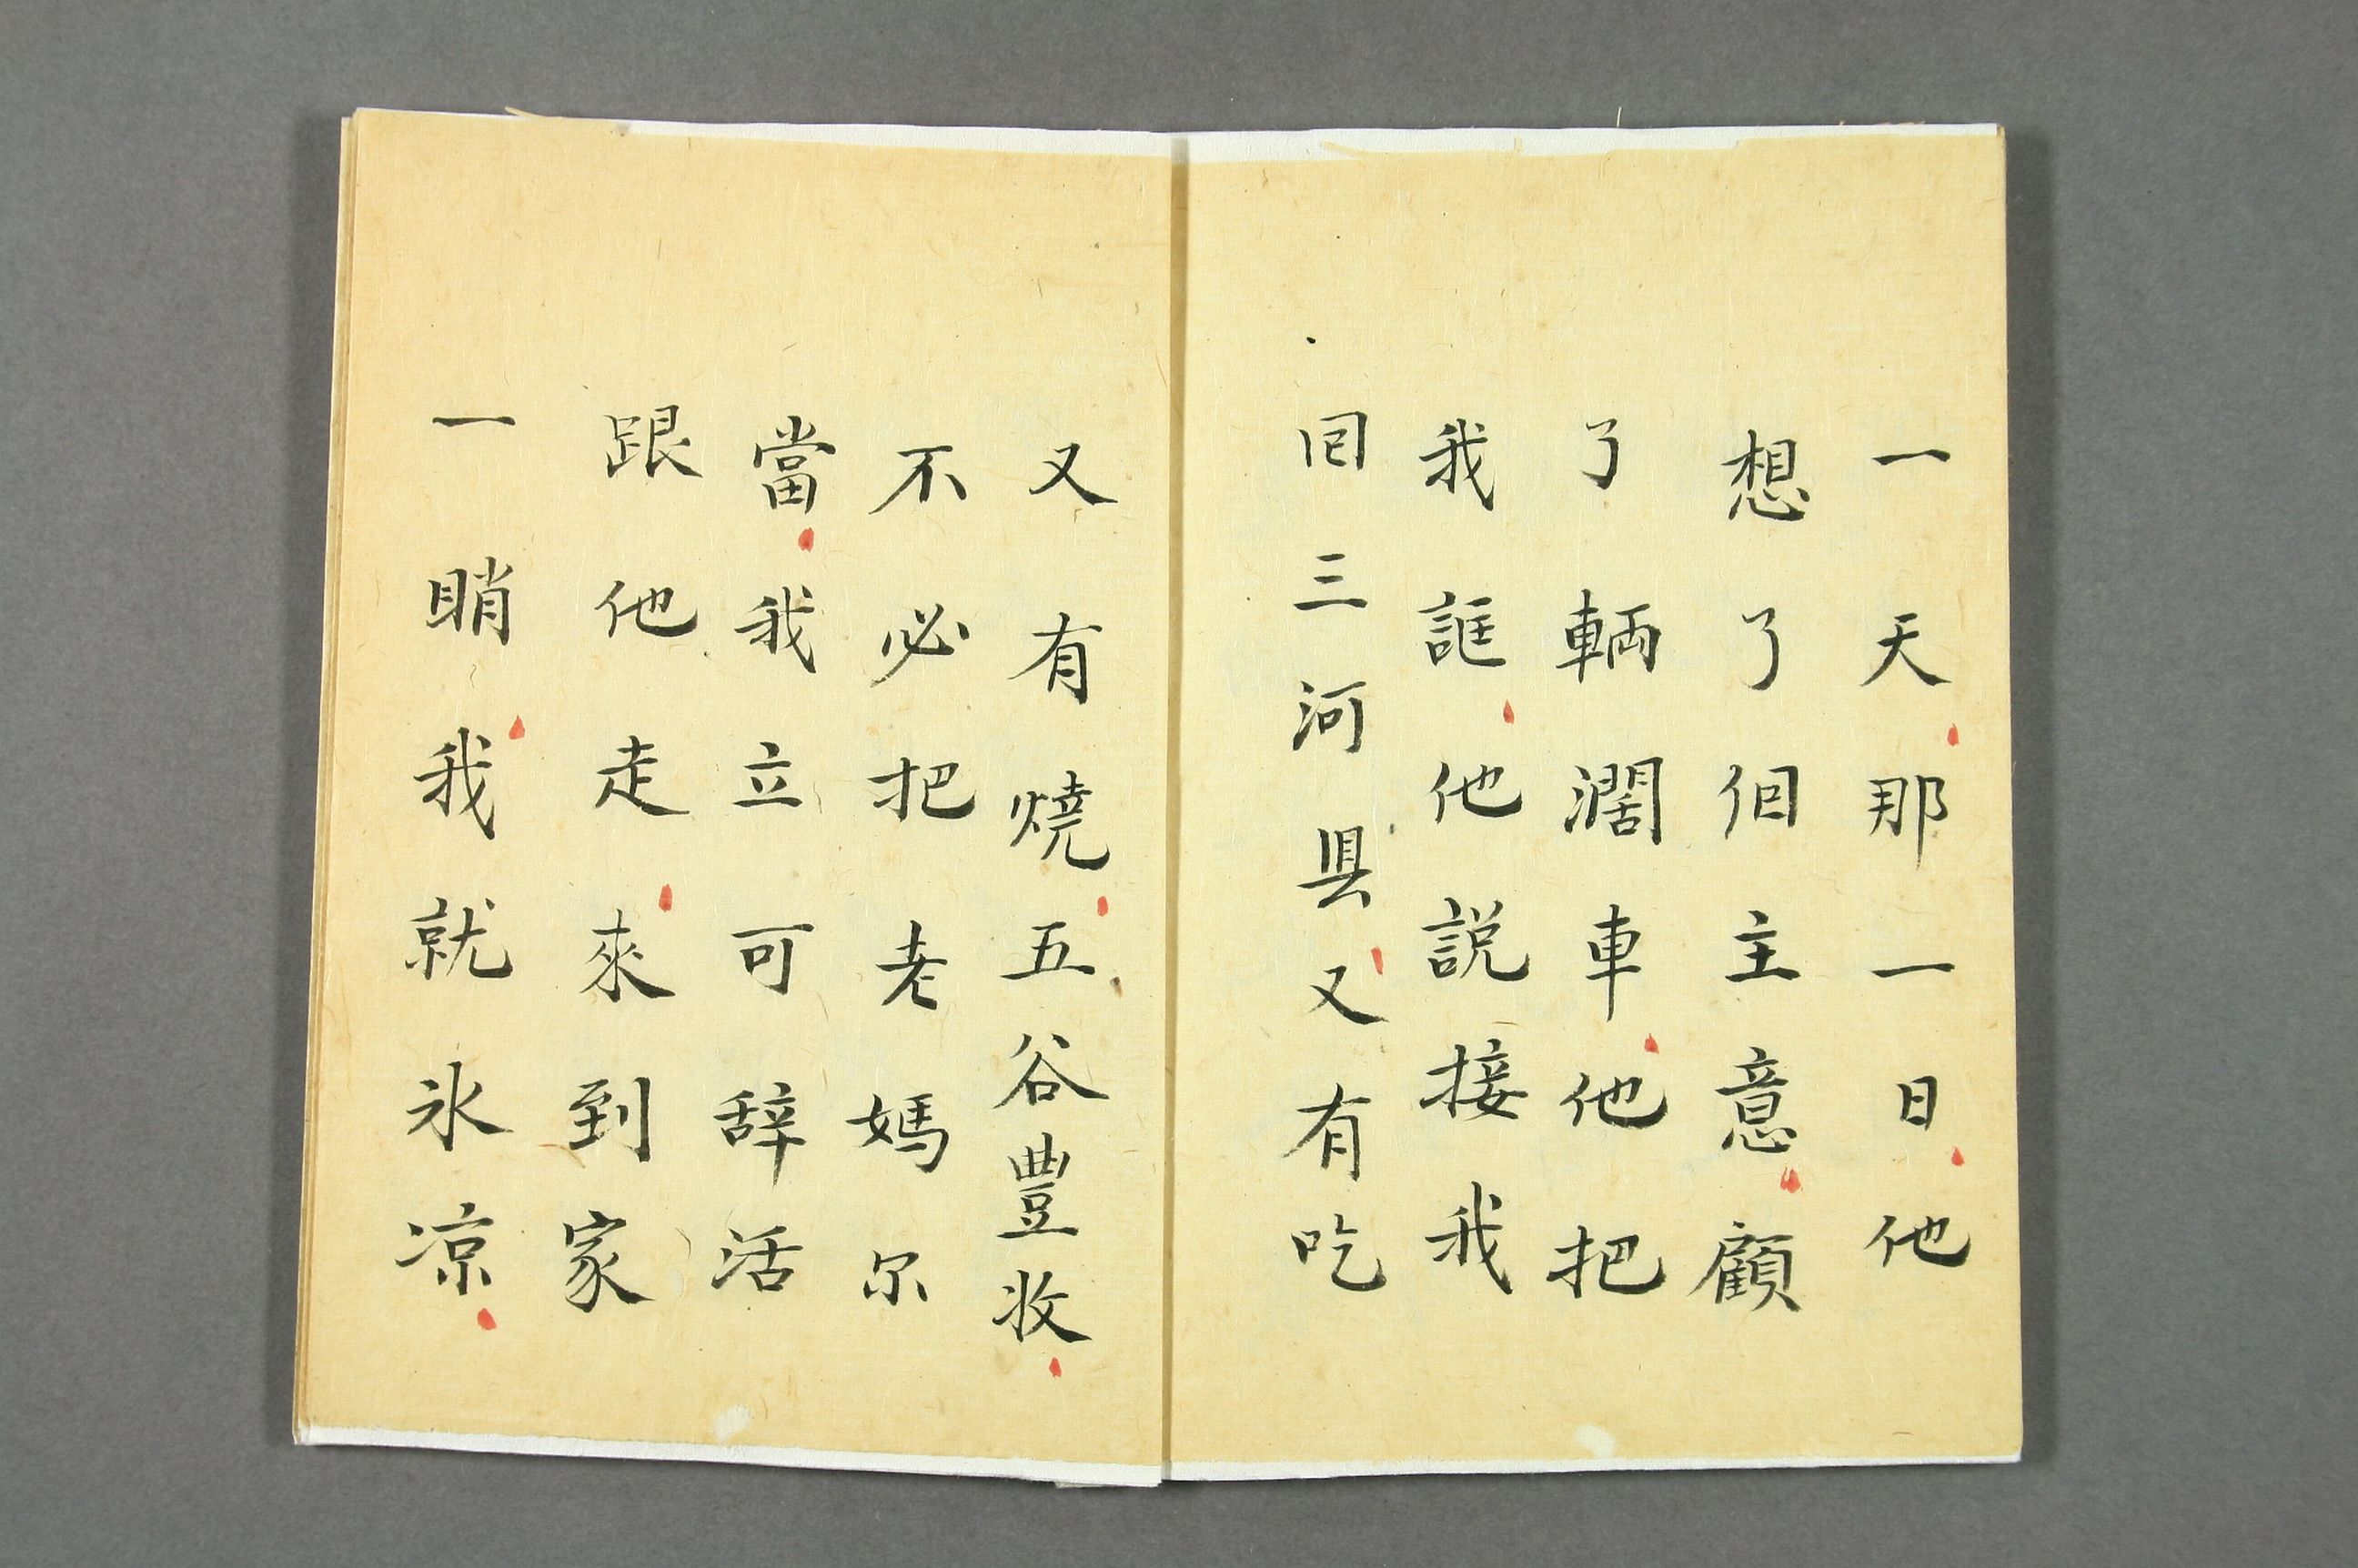 一天那一日他
想了佪主意顧
了輌濶車他把
我誆他説接我
囘三河具又有吃
又有燒五谷豊收
不必把老媽尔
當我立可辞活
跟他走來到家
一睄我就氷凉